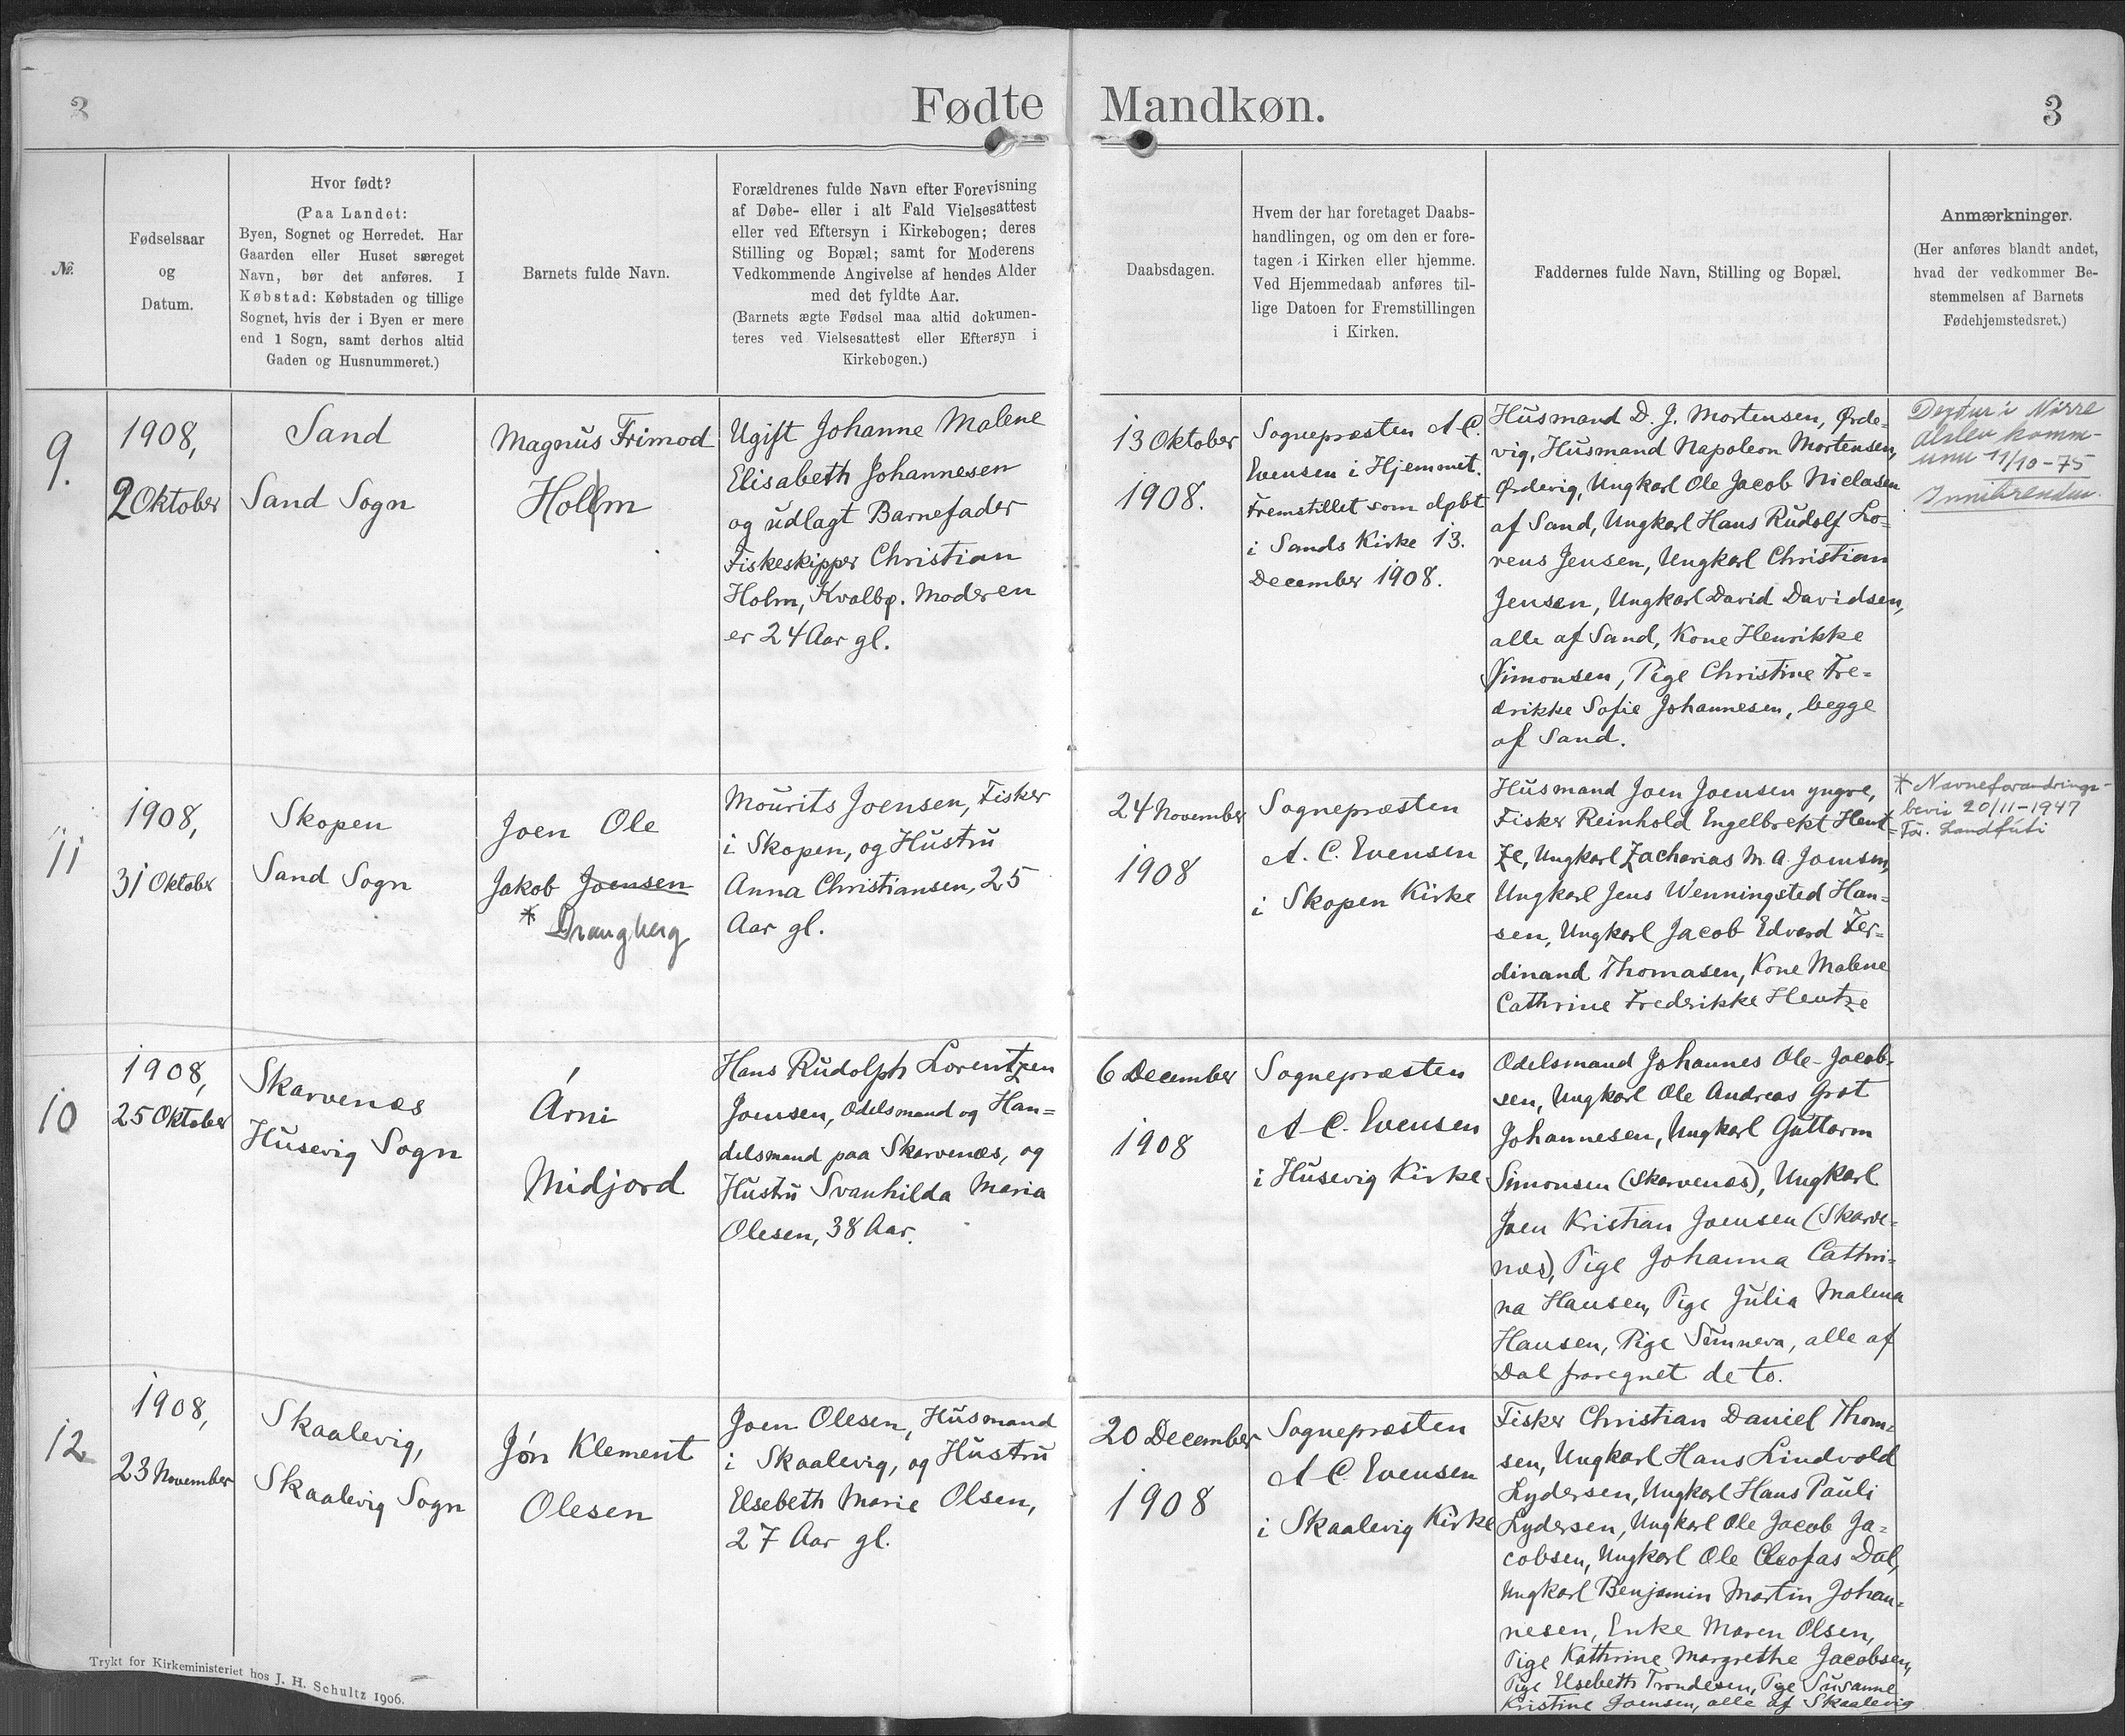 3
Fødte Mandkøn.
3
№.
Fødselsaar
og
Datum.
Hvor født?
(Paa Landet:
Byen, Sognet og Herredet. Har
Gaarden eller Huset særeget
Navn, bør det anføres. I
Købstad: Købstaden og tillige
Sognet, hvis der i Byen er mere
end 1 Sogn, samt derhos altid
Gaden og Husnummeret.)
Barnets fulde Navn.
Forældrenes fulde Navn efter Forevisning
af Døbe- eller i alt Fald Vielsesattest
eller ved Eftersyn i Kirkebogen; deres
Stilling og Bopæl; samt for Moderens
Vedkommende Angivelse af hendes Alder
med det fyldte Aar.
(Barnets ægte Fødsel maa altid dokumen-
teres ved Vielsesattest eller Eftersyn i
Kirkebogen.)
Daabsdagen.
Hvem der har foretaget Daabs-
handlingen, og om den er fore-
tagen i Kirken eller hjemme.
Ved Hjemmedaab anføres til-
lige Datoen for Fremstillingen
i Kirken.
Faddernes fulde Navn, Stilling og Bopæl.
Anmærkninger.
(Her anføres blandt andet,
hvad der vedkommer Be-
stemmelsen af Barnets
Fødehjemstedsret.)
9.
1908,
2 Oktober
Sand
Sand Sogn
Magnus Frimod
Holm
Ugift Johanne Malene
Elisabeth Johannesen
og udlagt Barnefader
Fiskeskipper Christian
Holm, Kvalbø. Moderen
er 24 Aar gl.
13 Oktober
1908.
Sognepræsten A. C.
Evensen i Hjemmet.
Fremstillet som døbt
i Sands Kirke 13.
December 1908.
Husmand D. J. Mortensen, Ørde-
vig, Husmand Napoleon Mortensen,
Ørdevig, Ungkarl Ole Jacob Niclasen
af Sand, Ungkarl Hans Rudolf Lo-
rens Jensen, Ungkarl Christian
Jensen, Ungkarl David Davidsen,
alle af Sand, Kone Henrikke
Simonsen, Pige Christine Fre-
drikke Sofie Johannesen, begge
af Sand.
Deydur í Nørre
Alslev komm-
unu 11/10-75
Innibrendur.
11
1908,
31 Oktober
Skopen
Sand Sogn
Joen Ole
Jakob Joensen
* Drangberg
Mourits Joensen, Fisker
i Skopen, og Hustru
Anna Christiansen, 25
Aar gl.
24 November
1908
Sognepræsten
A. C. Evensen
i Skopen Kirke
Husmand Joen Joensen yngre,
Fisker Reinhold Engelbrekt Hent-
ze, Ungkarl Zacharias M. A. Joensen,
Ungkarl Jens Wenningsted Han-
sen, Ungkarl Jacob Edvard Fer-
dinand Thomasen, Kone Malene
Cathrine Frederikke Hentze
* Navneforandrings-
bevis 20/11-1947
Før. Landfúti
10
1908,
25 Oktober
Skarvenæs
Husevig Sogn
Árni
Midjord
Hans Rudolph Lorentzen
Joensen, Odelsmand og Han-
delsmand paa Skarvenæs, og
Hustru Svanhilda Maria
Olesen, 38 Aar.
6 December
1908
Sognepræsten
A. C. Evensen
i Husevig Kirke
Odelsmand Johannes Ole Jacob-
sen, Ungkarl Ole Andreas Grot
Johannesen, Ungkarl Guttorm
Simonsen (Skarvenæs), Ungkarl
Joen Kristian Joensen (Skarve-
næs), Pige Johanna Cathri-
na Hansen, Pige Julia Malena
Hansen, Pige Sunneva, alle af
Dal fraregnet de to.
12
1908,
23 November
Skaalevig,
Skaalevig Sogn
Jón Klement
Olesen
Joen Olesen, Husmand
i Skaalevig, og Hustru
Elsebeth Marie Olsen,
27 Aar gl.
20 December
1908
Sognepræsten
A C. Evensen
i Skaalevig Kirke
Fisker Christian Daniel Thom-
sen, Ungkarl Hans Lindvold
Lydersen, Ungkarl Hans Pauli
Lydersen, Ungkarl Ole Jacob Ja-
cobsen, Ungkarl Ole Cleofas Dal,
Ungkarl Benjamin Martin Johan-
nesen, Enke Maren Olsen,
Pige Kathrine Margrethe Jacobsen,
Pige Elsebeth Trondesen, Pige Susanne
Kristine Joensen, alle af Skaalevig
Trykt for Kirkeministeriet hos J. H. Schultz 1906.